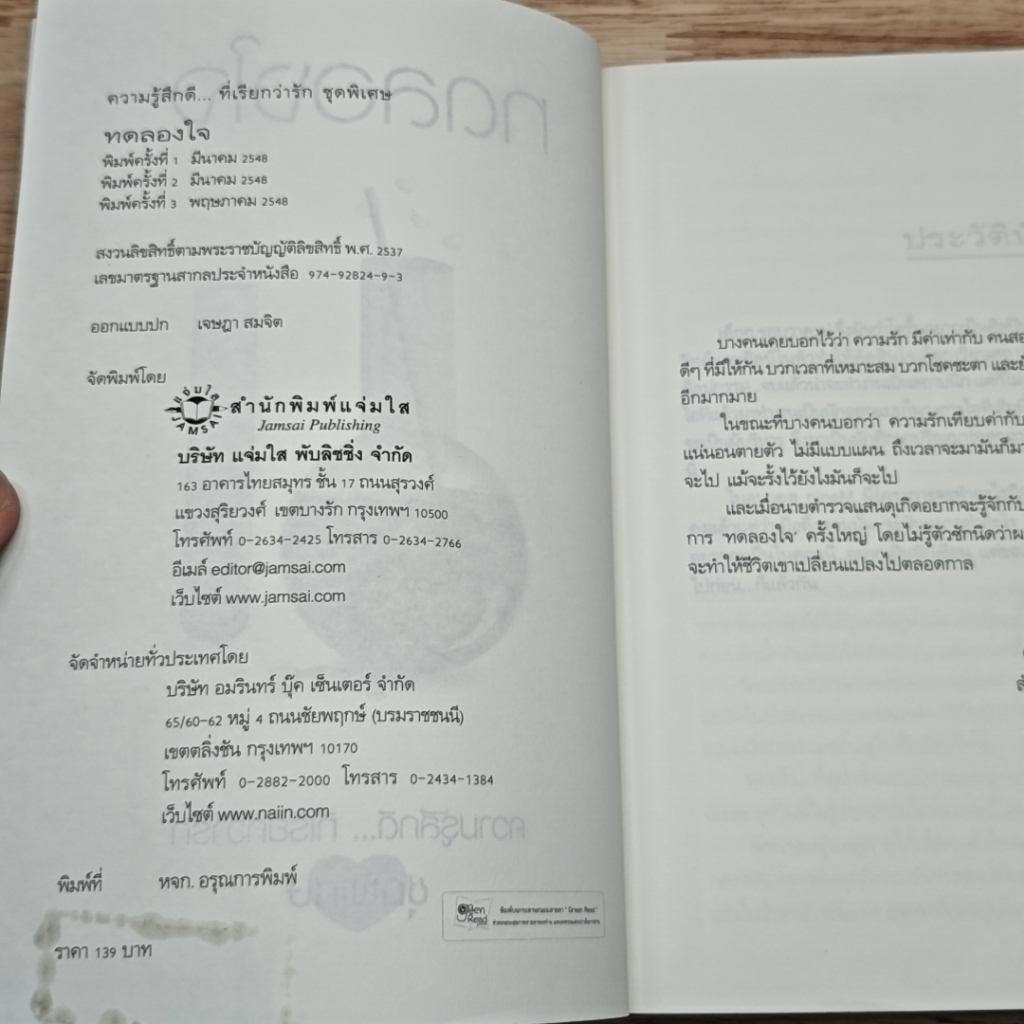 ความรู้สึกดี... ที่เรียกว่ารัก ชุดพิเศษ
ทดลองใจ
พิมพ์ครั้งที่ 1 มีนาคม 2548
พิมพ์ครั้งที่ 2 มีนาคม 2548
พิมพ์ครั้งที่ 3 พฤษภาคม 2548
สงวนลิขสิทธิ์ตามพระราชบัญญัติลิขสิทธิ์ พ.ศ. 2537
เลขมาตรฐานสากลประจำหนังสือ 974-92824-9-3
ออกแบบปก เจษฎา สมจิต
จัดพิมพ์โดย
แจ่มใส
JAMSAI
สำนักพิมพ์แจ่มใส
Jamsai Publishing
บริษัท แจ่มใส พับลิชชิ่ง จำกัด
163 อาคารไทยสมุทร ชั้น 17 ถนนสุรวงศ์
แขวงสุริยวงศ์ เขตบางรัก กรุงเทพฯ 10500
โทรศัพท์ 0-2634-2425 โทรสาร 0-2634-2766
อีเมล์ editor@jamsai.com
เว็บไซต์ www.jamsai.com
จัดจำหน่ายทั่วประเทศโดย
บริษัท อมรินทร์ บุ๊ค เซ็นเตอร์ จำกัด
65/60-62 หมู่ 4 ถนนชัยพฤกษ์ (บรมราชชนนี)
เขตตลิ่งชัน กรุงเทพฯ 10170
โทรศัพท์ 0-2882-2000 โทรสาร 0-2434-1384
เว็บไซต์ www.naiin.com
พิมพ์ที่ หจก. อรุณการพิมพ์
Green Read
ราคา 139 บาท
ประวัติ
บางคนเคยบอกไว้ว่า ความรัก มีค่าเท่ากับ คนสอ
ดีๆ ที่มีให้กัน บวกเวลาที่เหมาะสม บวกโชคชะตา และ
อีกมากมาย
ในขณะที่บางคนบอกว่า ความรักเทียบค่ากับ
แน่นอนตายตัว ไม่มีแบบแผน ถึงเวลาจะมามันก็มา
จะไป แม้จะรั้งไว้ยังไงมันก็จะไป
และเมื่อนายตำรวจแสนดุเกิดอยากจะรู้จักกับ
การ 'ทดลองใจ' ครั้งใหญ่ โดยไม่รู้ตัวซักนิดว่าผ
จะทำให้ชีวิตเขาเปลี่ยนแปลงไปตลอดกาล